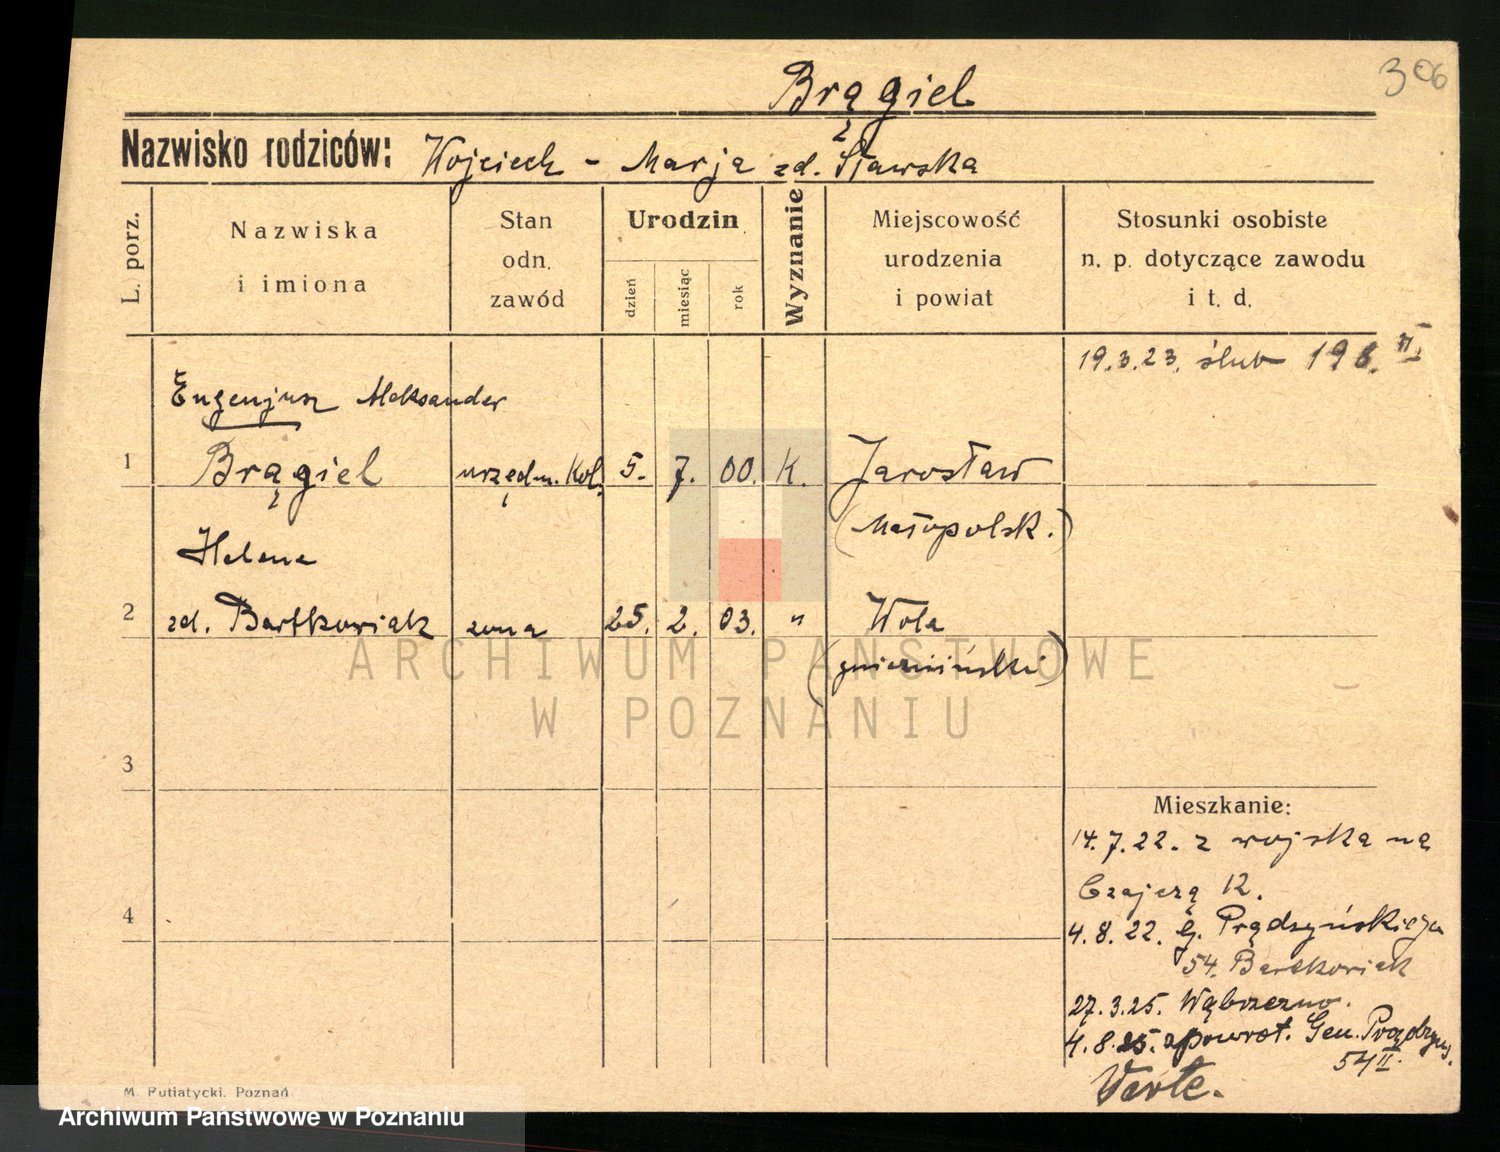 306
Brągiel
Nazwisko rodziców: Wojciech - Marja zd. Sławska
L. porz.
Nazwiska
i imiona
Stan
odn.
zawód
Urodzin
dzień
miesiąc
rok
Wyznanie
Miejscowość
urodzenia
i powiat
Stosunki osobiste
n. p. dotyczące zawodu
i t. d.
19.3.23. ślub 196. II
Eugenjusz Aleksander
1 Brągiel urzędn. Kol. 5. 7. 00. K. Jarosław
(Małopolsk.)
Helena
2 zd. Bartkowiak żona 25. 2. 03. " Wola
(gnieźnińskie)
ARCHIWUM PAŃSTWOWE
W POZNANIU
3
Mieszkanie:
14.7.22. z wojska na
Czajczą 12.
4
4.8.22. G. Prądzyńskiego
54. Bartkowiak
27.3.25. Wąbrzezno.
4.8.25. zpowrot. Gen. Prądzyns.
54 II.
Verte.
M. Putiatycki. Poznań
Archiwum Państwowe w Poznaniu